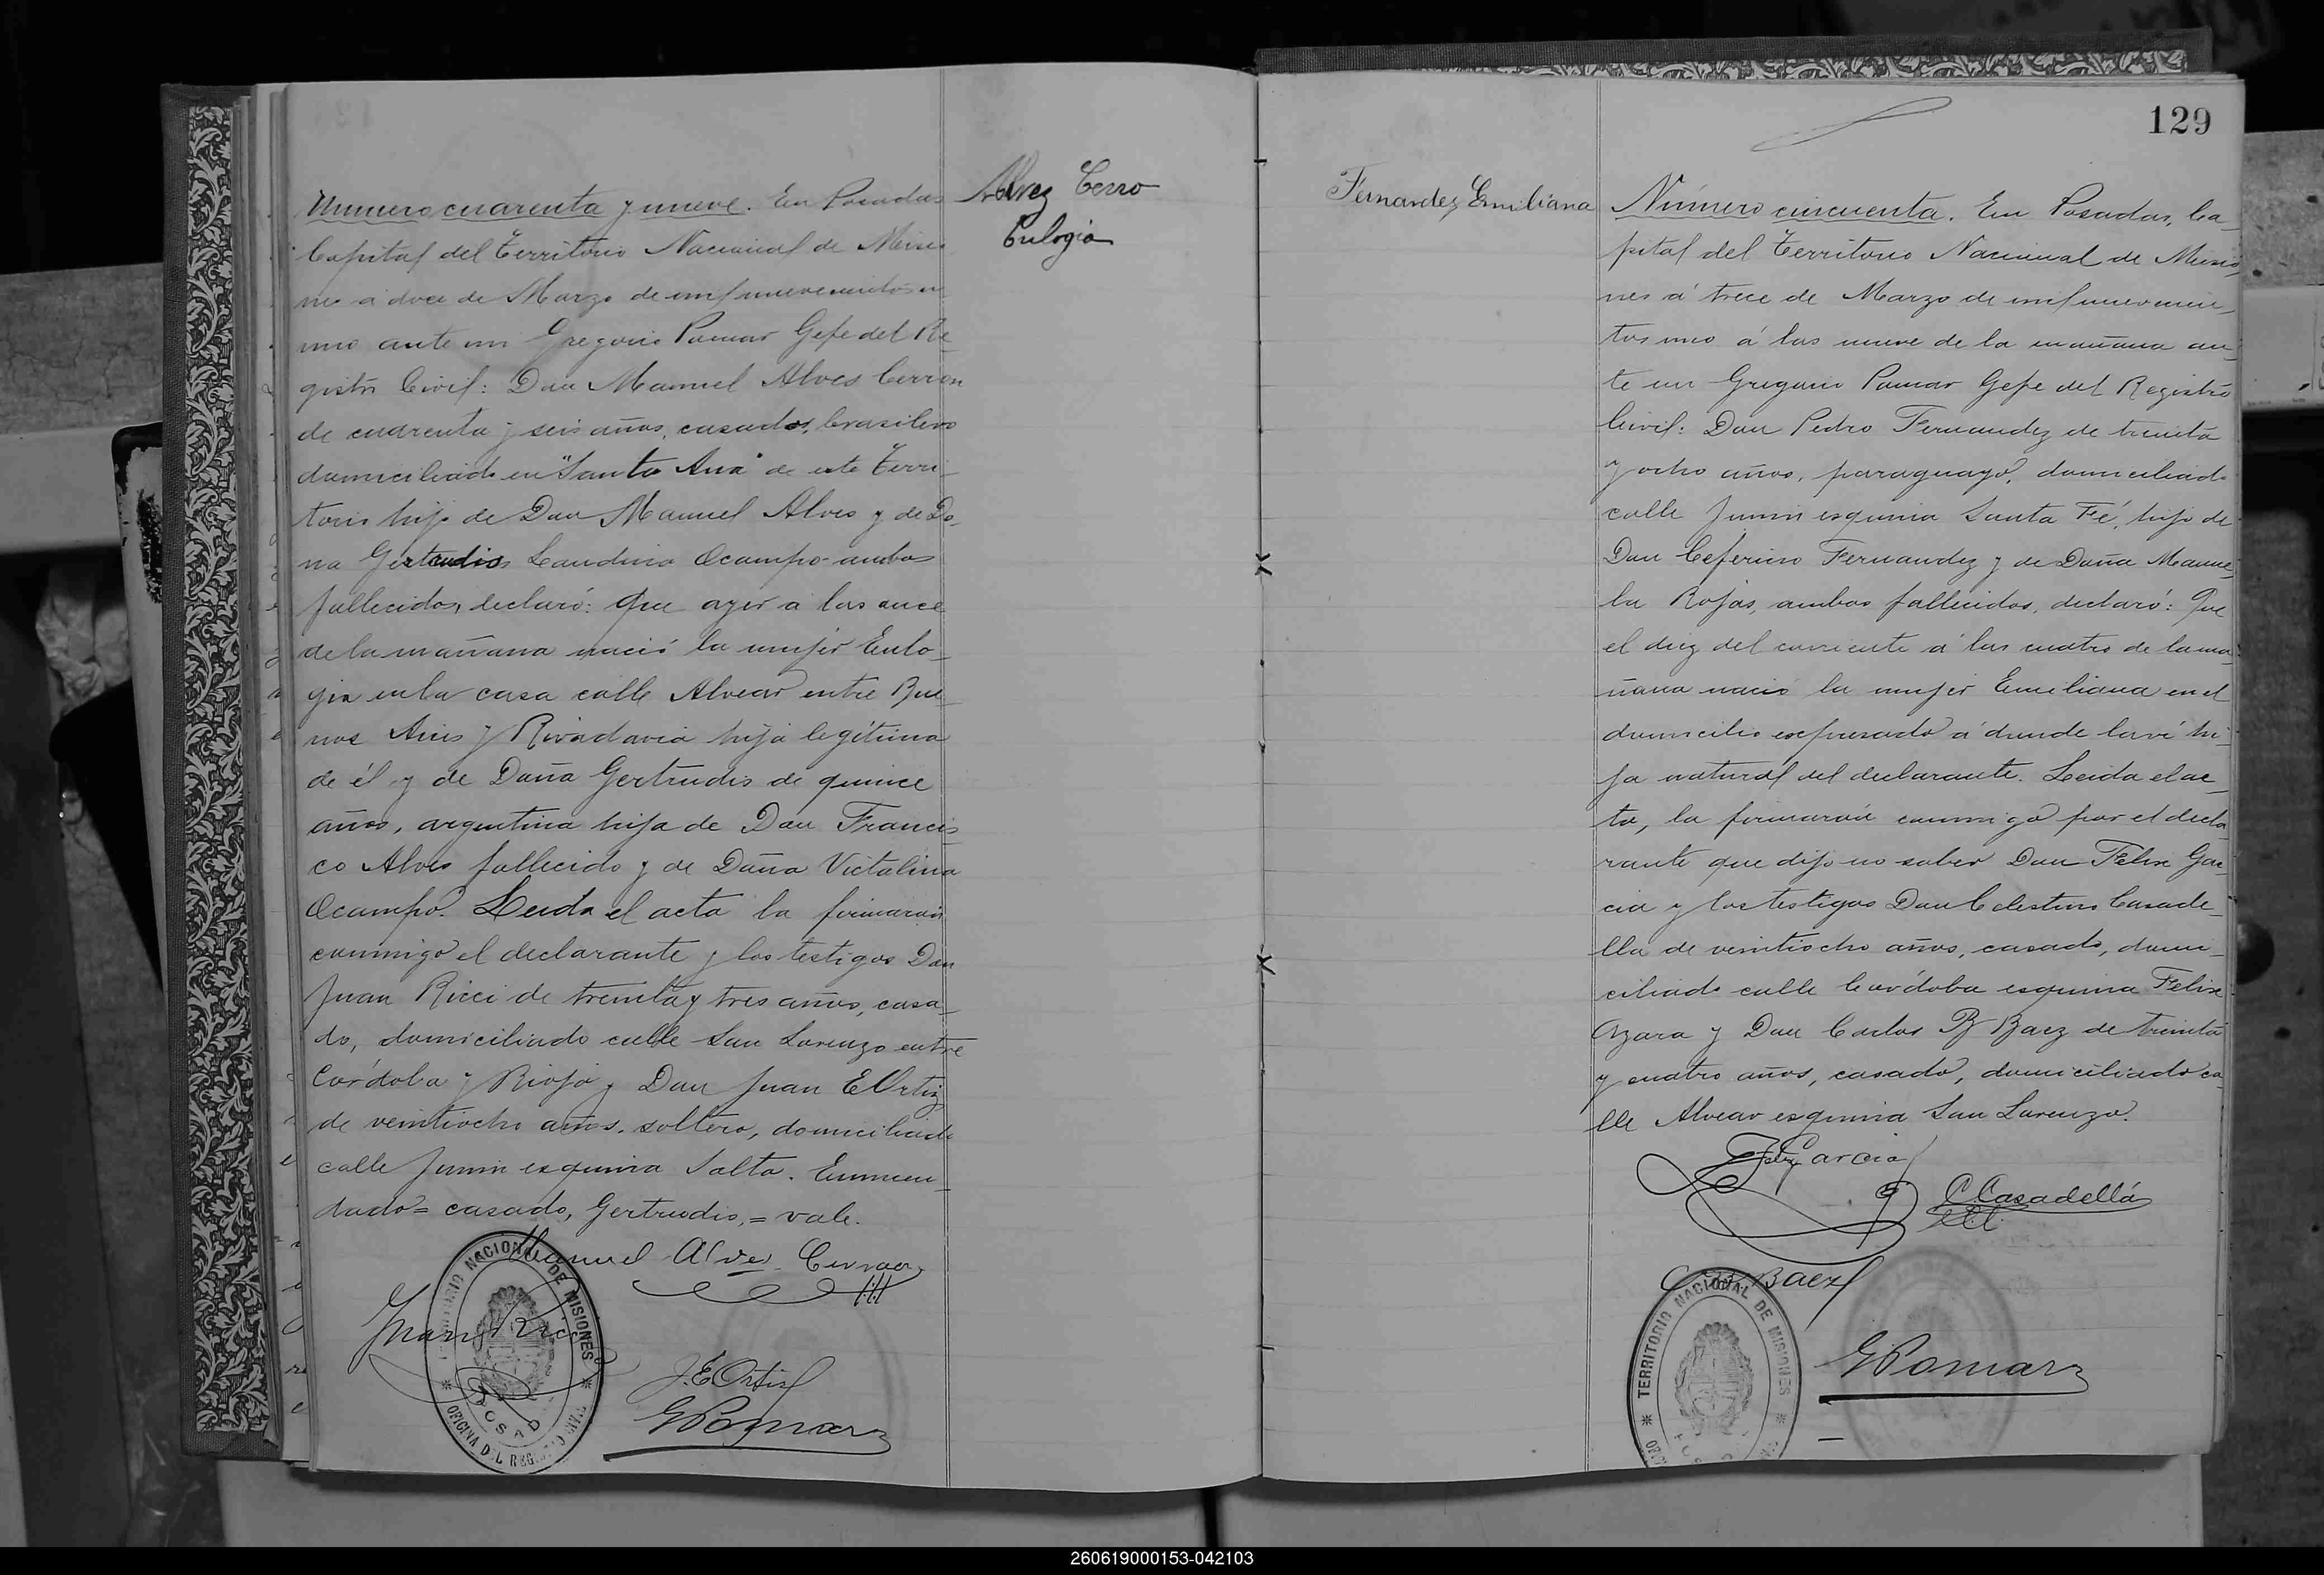 Alvez Cerro
Eulogia
Numero cuarenta y nueve. En Posadas
Capital del Territorio Nacional de Misio
nes á doce de Marzo de mil nuevecientos u
uno ante mi Gregorio Pomar Gefe del Re
gistro Civil: Don Manuel Alves Cerron
de cuarenta y seis años, casado, brasilero
domiciliado en "Santa Ana" de este Terri
torio hijo de Don Manuel Alves y de Do
na Gertrudis Laudina Ocampo ambos
fallecidos, declaró: Que ayer a las once
de la mañana nació la mujer Eulo
gia en la casa calle Alvear entre Bue
nos Aires y Rivadavia hija legítima
de él y de Doña Gertrudis de quince
años, argentina hija de Don Francis
co Alves fallecido y de Doña Victalina
Ocampo. Leida el acta la firmaron
conmigo el declarante y los testigos Don
Juan Ricci de treinta y tres años, casa
do, domiciliado calle San Lorenzo entre
Córdoba y Rioja y Don Juan E Ortiz
de veintiocho años, soltero, domiciliado
calle Junin esquina Salta. Enmen
dado = casado, Gertrudis, = vale.
Manuel Alves
Juan Ricci
J. E. Ortiz
GPomar
TERRITORIO NACIONAL DE MISIONES
OFICINA DEL REGISTRO CIVIL
POSADAS
129
Fernandez Emiliana
Número cincuenta. En Posadas, Ca
pital del Territorio Nacional de Misio
nes á trece de Marzo de mil nuevecien
tos uno á las nueve de la mañana an
te mi Gregorio Pomar Gefe del Registro
Civil: Don Pedro Fernandez de treinta
y ocho años, paraguayo, domiciliado
calle Junin esquina Santa Fé, hijo de
Don Ceferino Fernandez y de Doña Manue
la Rojas, ambos fallecidos, declaró: Que
el diez del corriente á las cuatro de la ma
ñana nació la mujer Emiliana en el
domicilio espresado á donde la ví hi
ja natural del declarante. Leida el ac
ta, la firmarón conmigo por el decla
rante que dijo no saber Don Felix Gar
cia y los testigos Don Celestino Casade
lla de veintiocho años, casado, domi
ciliado calle Córdoba esquina Felix
Azara y Don Carlos B Baez de treinta
y cuatro años, casado, domiciliado ca
lle Alvear esquina San Lorenzo.
Felix Garcia
C. Casadellá
Baez
GPomar
TERRITORIO NACIONAL DE MISIONES
260619000153-042103